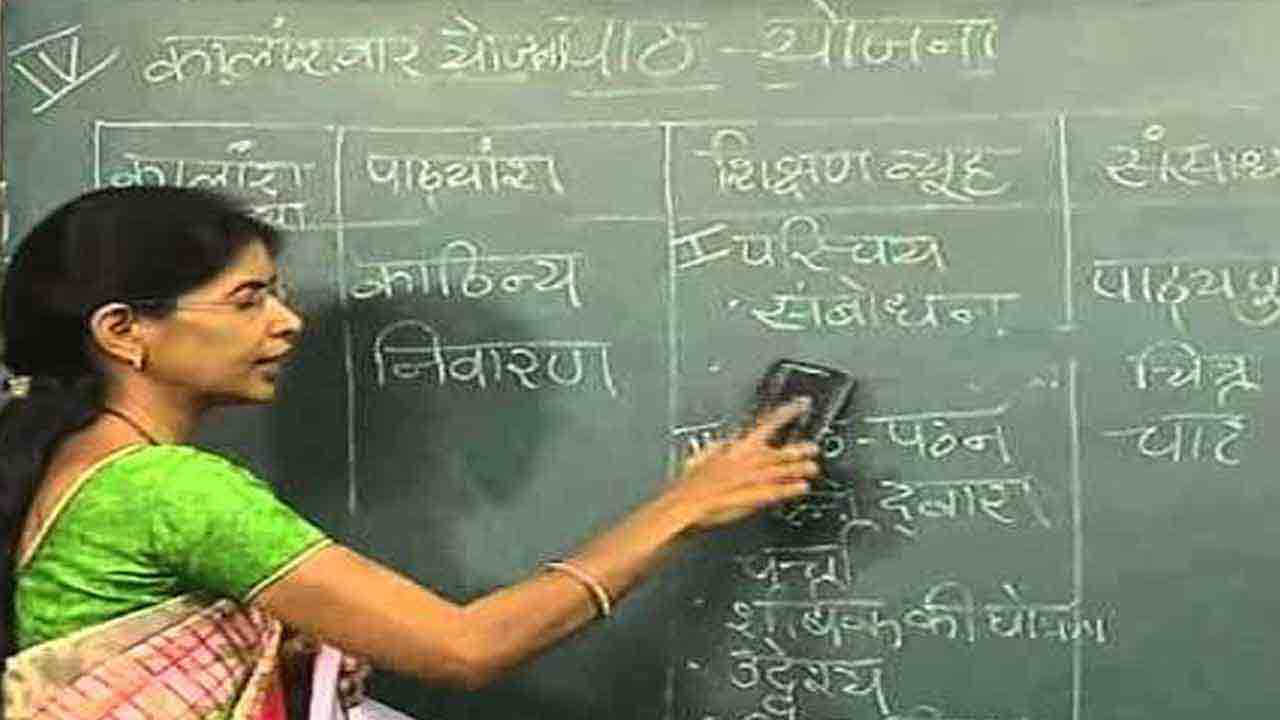 IV कालांशवार योजना पाठ - योजना
कालांश पाठ्यांश शिक्षण व्यूह संसाध
काठिन्य
निवारण
I परिचय
· संबोधन
- पठन
द्वारा
चर्चा
· शीर्षक की घोषणा
· उद्देश्य
पाठ्य पु
चित्र
चार्ट